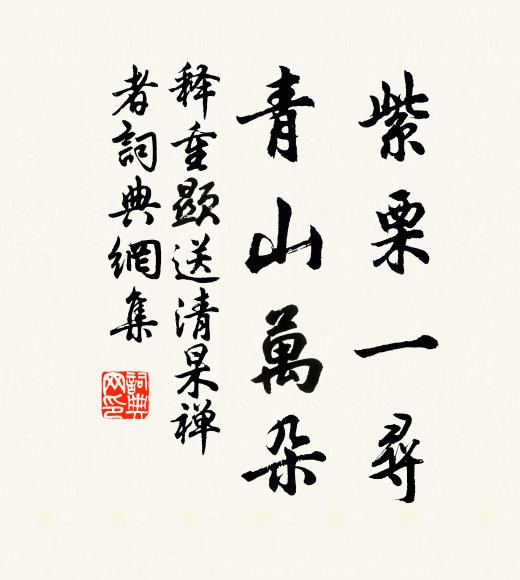 紫栗一尋
青山萬朵
释重顯送清杲禅
者詞典網集
詞典网印